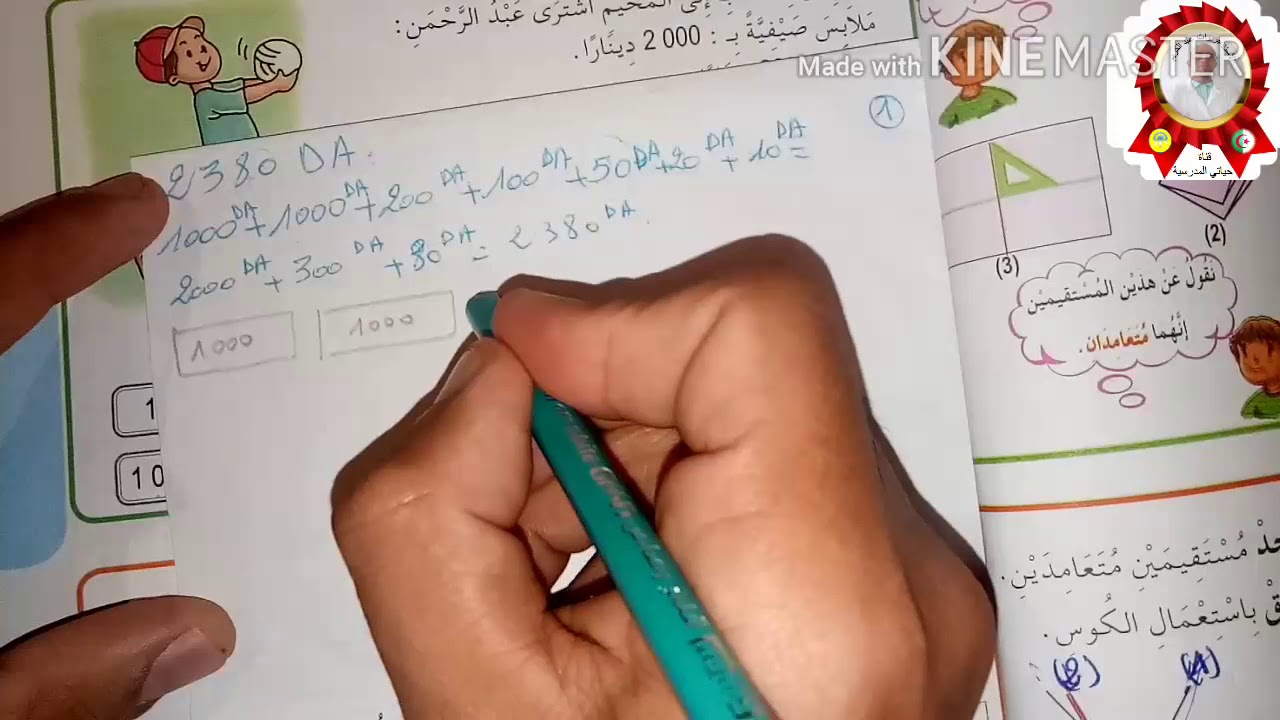 إِلَى الْمُخَيَّمِ اشْتَرَى عَبْدُ الرَّحْمَنِ:
مَلَابِسَ صَيْفِيَّةً بِـ: 000 2 دِينَارًا.
Made with KINEMASTER
قناة
حياتي المدرسية
1
2380 DA.
1000 DA + 1000 DA + 200 DA + 100 DA + 50 DA + 20 DA + 10 DA =
2000 DA + 300 DA + 80 DA = 2380 DA.
1000 1000
1
10
(2)
(3)
نَقُولُ عَنْ هَذَيْنِ الْمُسْتَقِيمَيْنِ
إِنَّهُمَا مُتَعَامِدَانِ.
مُسْتَقِيمَيْنِ مُتَعَامِدَيْنِ.
بِاسْتِعْمَالِ الْكُوسِ.
(2) (1)